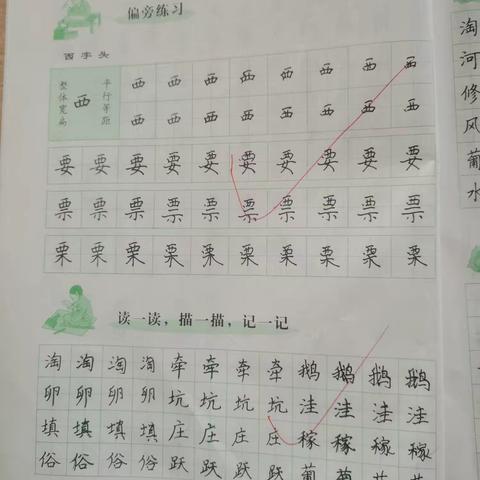 偏旁练习
西字头
整体宽扁 西 平行等距
西 西 西 西 西 西 西 西
西 西 西 西 西 西 西 西
要 要 要 要 要 要 要 要 要 要
票 票 票 票 票 票 票 票 票 票
栗 栗 栗 栗 栗 栗 栗 栗 栗 栗
读一读，描一描，记一记
淘 淘 淘 淘 牵 牵 牵 牵 鹅 鹅 鹅 鹅
卵 卵 卵 卵 坑 坑 坑 坑 洼 洼 洼 洼
填 填 填 填 庄 庄 庄 庄 稼 稼 稼 稼
俗 俗 俗 俗 跃 跃 跃 跃 葡 葡 葡 葡
淘
河
修
风
葡
水